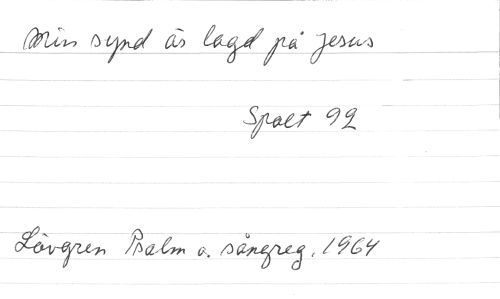 Min synd är lagd på Jesus
Spalt 92
Lövgren Psalm o. sångreg. 1964